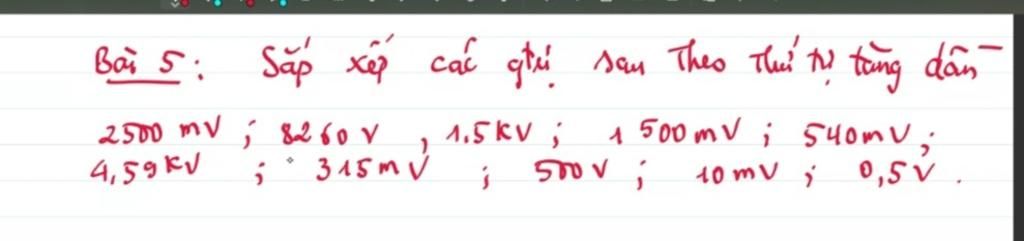 Bài 5: Sắp xếp các gtrị sau theo thứ tự tăng dần
2500 mV ; 8260 V , 1.5KV ; 1 500mV ; 540mV ;
4,59KV ; 315mV ; 500V ; 10mV ; 0,5V .